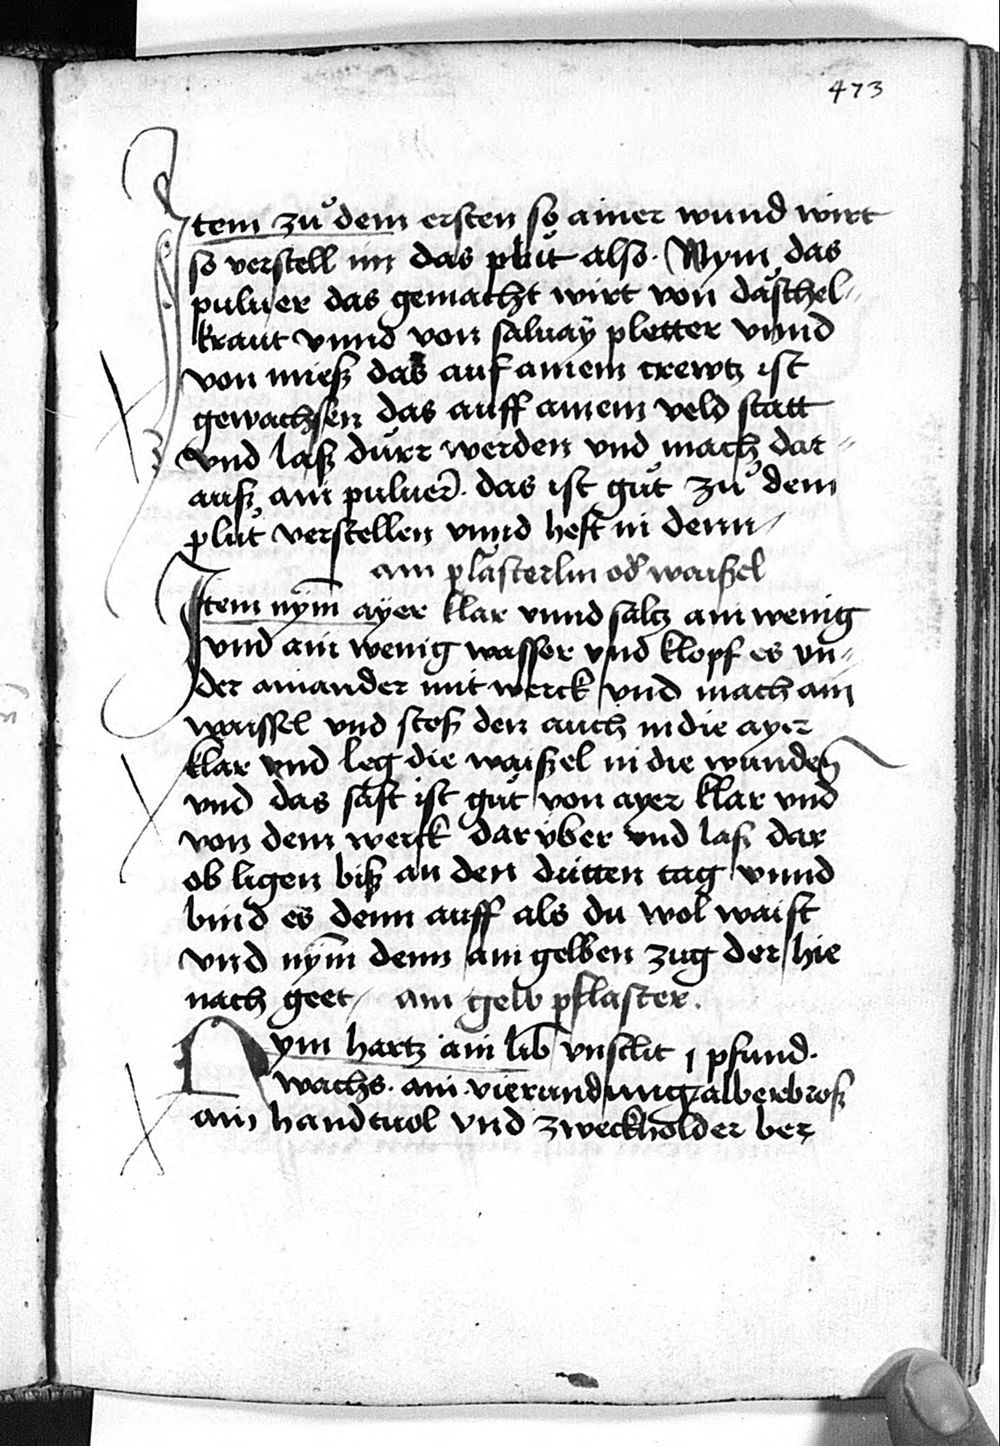 473
Item zuͦ dem ersten so ainer wund wirt
so verstell im das pluͦt also. Nym das
puluer das gemacht wirt von däschel-
kraut vnnd von saluaÿ pletter vnnd
von mieß das auf ainem crewtz ist
gewachssen das auff ainem veld statt
vnd laß dürr werden vnd mach dar-
auß ain puluer. das ist guͦt zuͦ dem
pluͦt verstellen vnnd heft in denn
ain plästerlin od waißel
Item nym̄ ayer klar vnnd saltz ain wenig
vnd ain wenig wasser vnd klopf es vn-
der ainander mit werck vnd mach ain
waissel vnd stoß den auch in die ayer
klar vnd leg die waißel in die wunden
vnd das saft ist guͦt von ayer klar vnd
von dem werck dar vber vnd laß dar
ob ligen biß an den dritten tag vnnd
bind es denn auff als du wol waist
vnd nym̄ denn ain gelben zug der hie
nach geet ain gelb pflaster.
Nym hartz ain lib vnslit j pfund.
wachs. ain vierandung alberbroß
ain handtuol vnd zweckholder ber